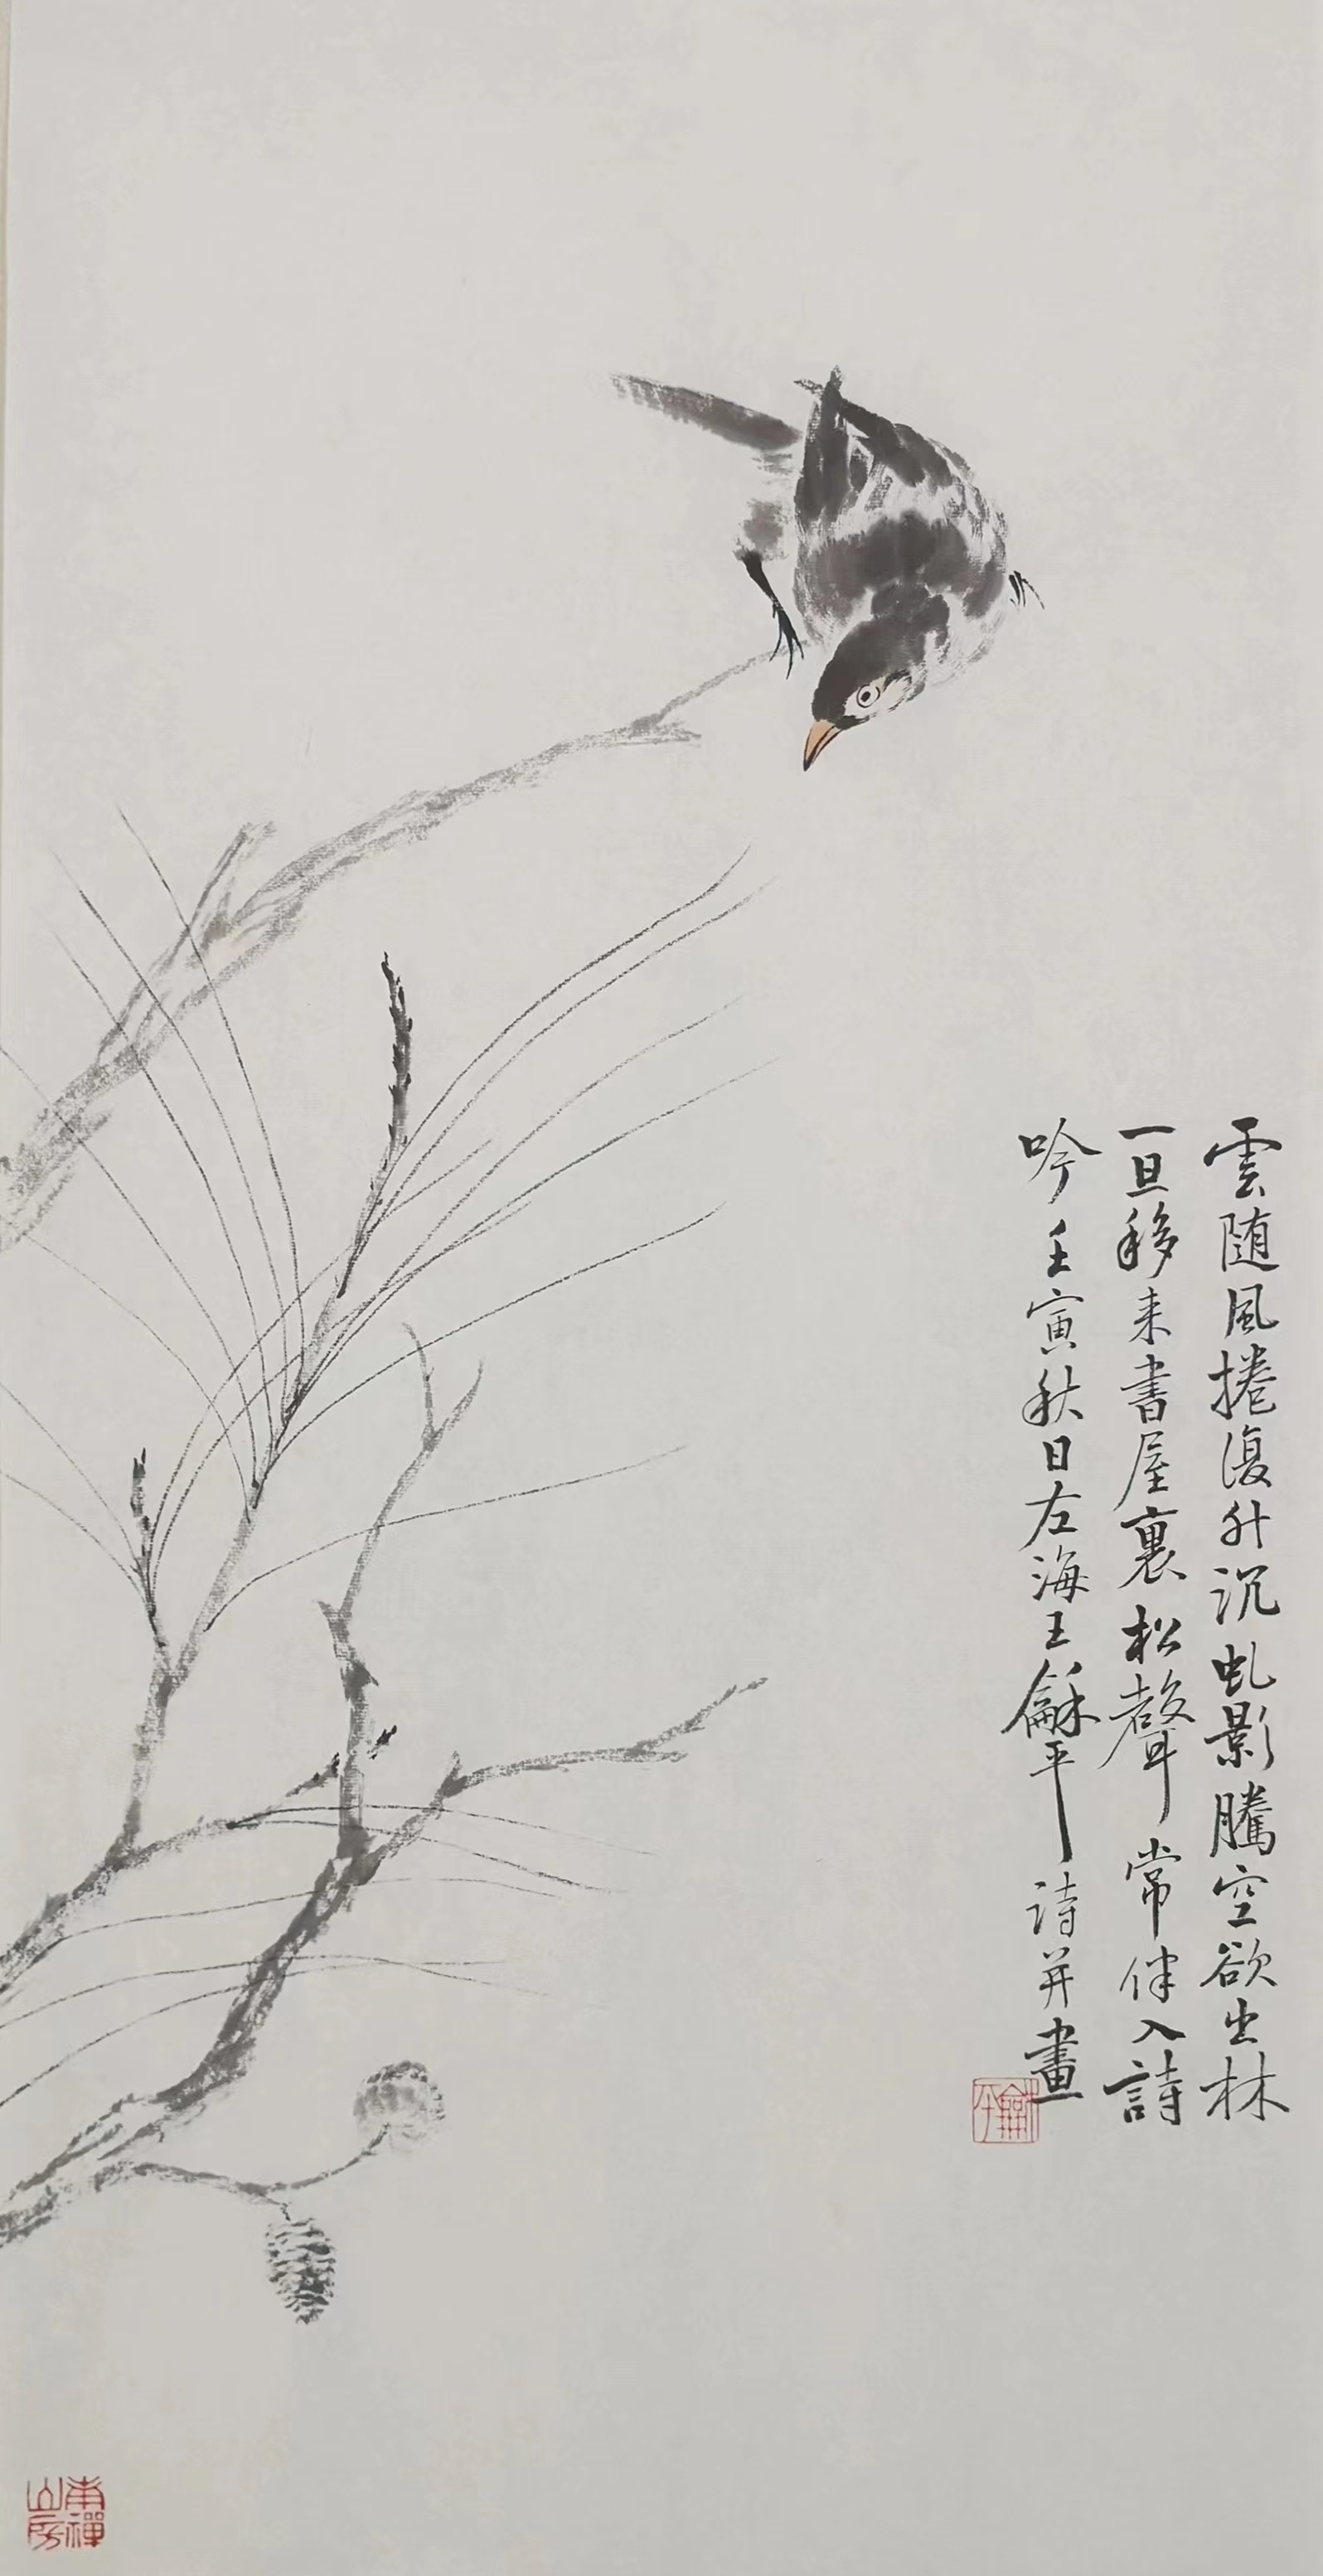 雲随風捲復升沉虬影騰空欲出林
一旦移来書屋裏松聲常伴入詩
吟壬寅秋日左海王龢平詩并畫
龢平
南禪山房